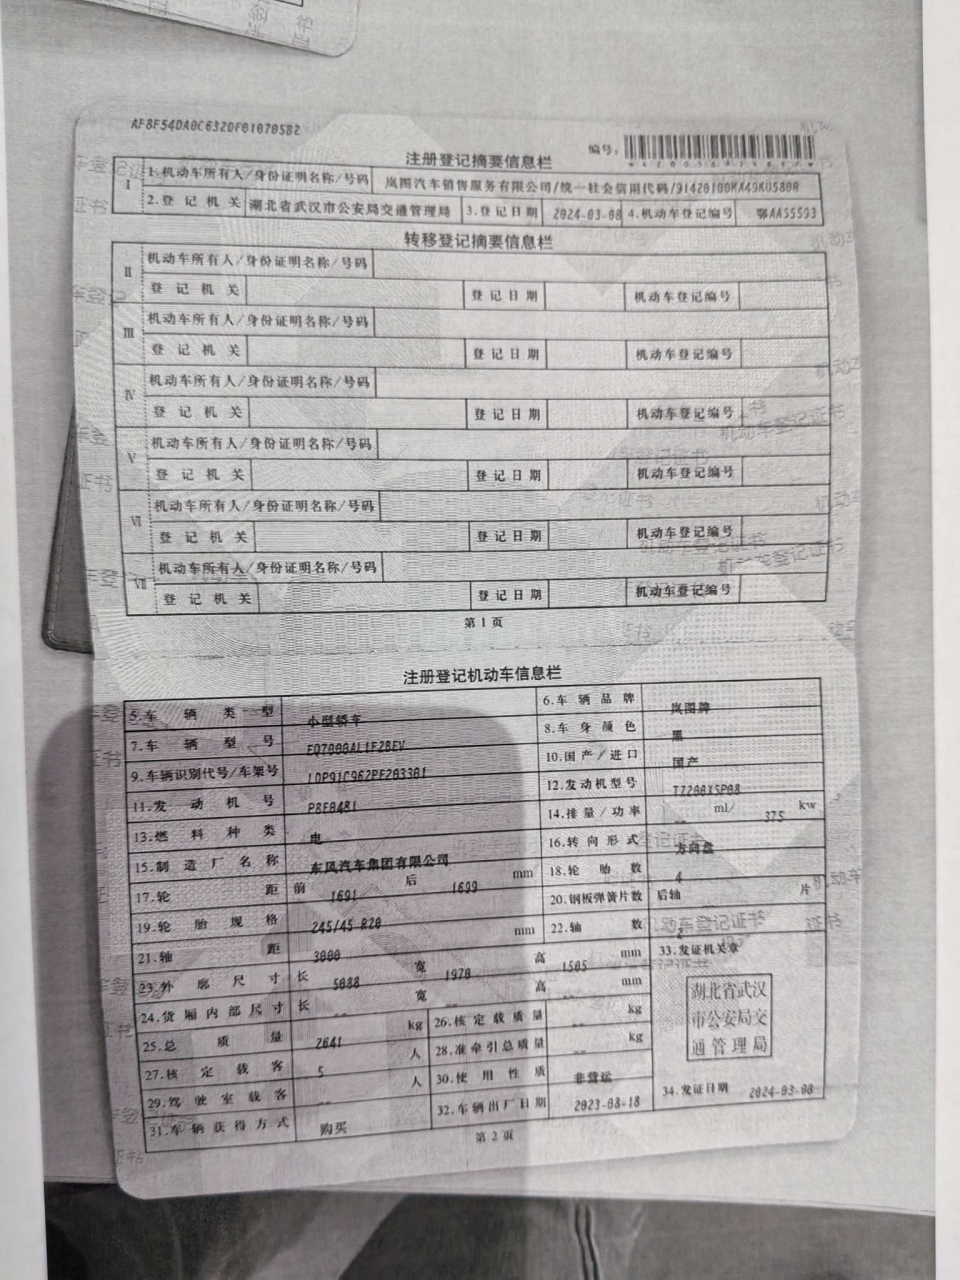 AF8F54DA0C632DF01070582
编号:
注册登记摘要信息栏
I 1.机动车所有人/身份证明名称/号码 岚图汽车销售服务有限公司/统一社会信用代码/91420100MA49KU580R
2.登记机关 湖北省武汉市公安局交通管理局 3.登记日期 2024-03-08 4.机动车登记编号 鄂AA55593
转移登记摘要信息栏
II 机动车所有人/身份证明名称/号码
登记机关 登记日期 机动车登记编号
III 机动车所有人/身份证明名称/号码
登记机关 登记日期 机动车登记编号
IV 机动车所有人/身份证明名称/号码
登记机关 登记日期 机动车登记编号
V 机动车所有人/身份证明名称/号码
登记机关 登记日期 机动车登记编号
VI 机动车所有人/身份证明名称/号码
登记机关 登记日期 机动车登记编号
VII 机动车所有人/身份证明名称/号码
登记机关 登记日期 机动车登记编号
第1页
注册登记机动车信息栏
5.车辆类型 小型轿车 6.车辆品牌 岚图牌
7.车辆型号 EQ7000AL1F2BEV 8.车身颜色 黑
9.车辆识别代号/车架号 LDP91C962PE203301 10.国产/进口 国产
11.发动机号 P8E0481 12.发动机型号 TZ200XSP08
13.燃料种类 电 14.排量/功率 -- ml/ 375 kw
15.制造厂名称 东风汽车集团有限公司 16.转向形式 方向盘
17.轮距 前 1691 后 1699 mm 18.轮胎数 4
19.轮胎规格 245/45 R20 20.钢板弹簧片数 后轴 片
21.轴距 3000 mm 22.轴数 2
23.外廓尺寸 长 5088 宽 1970 高 1505 mm 33.发证机关章
24.货厢内部尺寸 长 -- 宽 -- 高 -- mm
25.总质量 2641 kg 26.核定载质量 -- kg
27.核定载客 5 人 28.准牵引总质量 -- kg
29.驾驶室载客 -- 人 30.使用性质 非营运
31.车辆获得方式 购买 32.车辆出厂日期 2023-08-18
湖北省武汉
市公安局交
通管理局
34.发证日期 2024-03-08
第2页